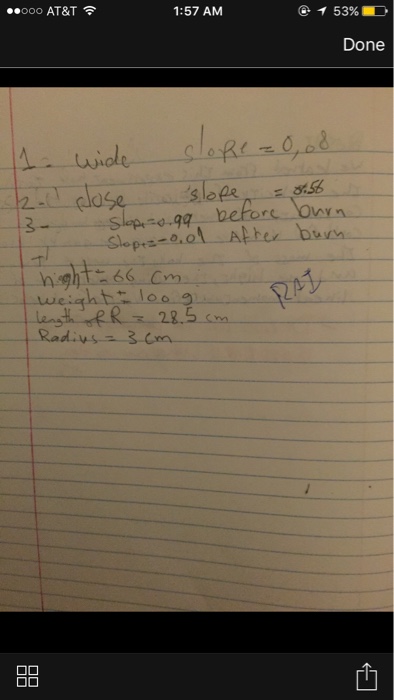 AT&T 1:57 AM 53%
Done
1- wide slope = 0,08
2- close slope =
3- Slope=0.99 before burn
Slope=-0.01 After burn
hight= 66 cm
weight= 100 g
length of R = 28.5 cm
Radius = 3 cm